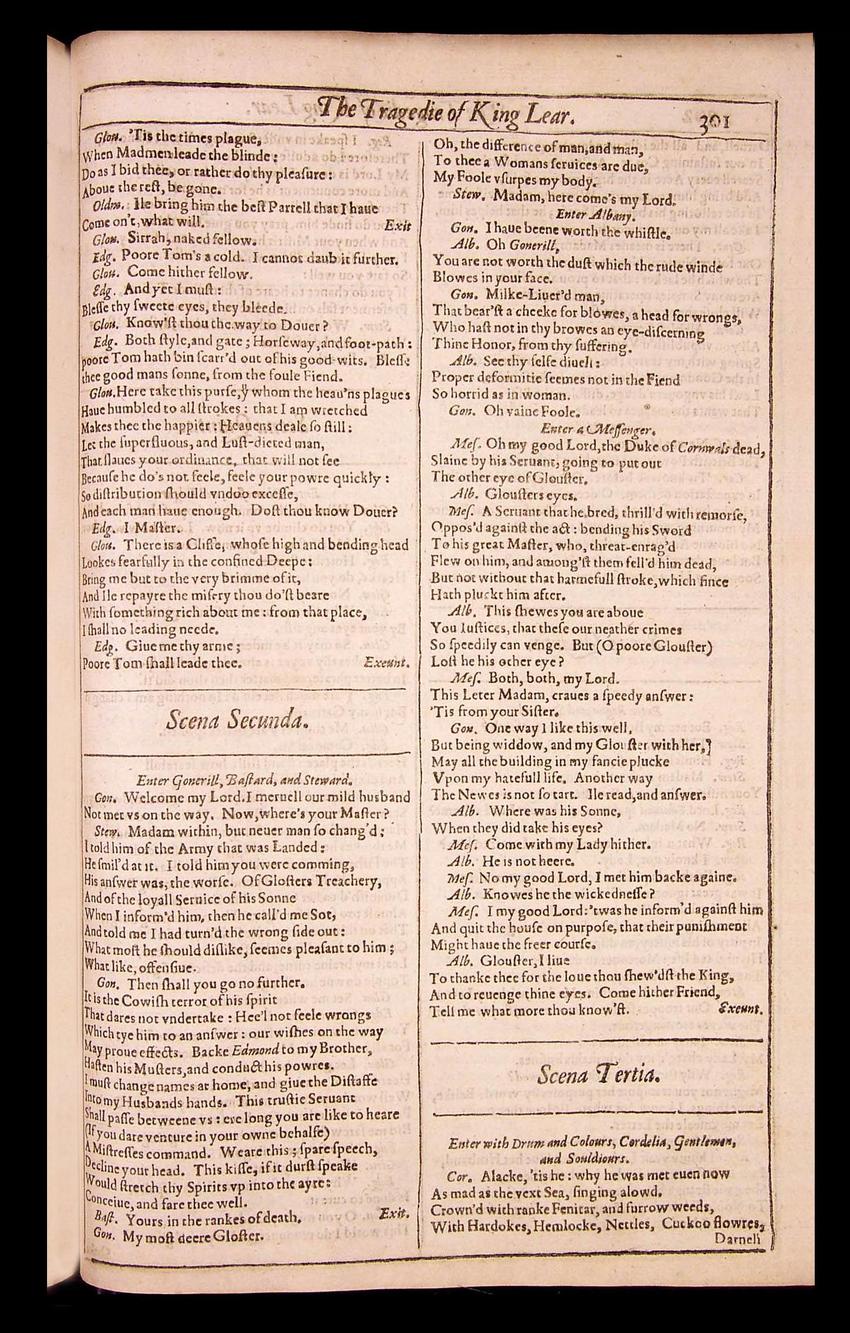 The Tragedie of King Lear.
301
Glou. 'Tis the times plague,
When Madmen leade the blinde:
Do as I bid thee, or rather do thy pleasure:
Aboue the rest, be gone.
Oldm. Ile bring him the best Parrell that I haue
Come on't, what will. Exit
Glou. Sirrah, naked fellow.
Edg. Poore Tom's a cold. I cannot daub it further.
Glou. Come hither fellow.
Edg. And yet I must:
Blesse thy sweete eyes, they bleede.
Glou. Know'st thou the way to Douer?
Edg. Both style, and gate; Horseway, and foot-path:
poore Tom hath bin scarr'd out of his good wits. Blesse
thee good mans sonne, from the foule Fiend.
Glou. Here take this purse, yͭ whom the heau'ns plagues
Haue humbled to all strokes: that I am wretched
Makes thee the happier: Heauens deale so still:
Let the superfluous, and Lust-dieted man,
That slaues your ordinance, that will not see
Because he do's not feele, feele your powre quickly:
So distribution should vndoo excesse,
And each man haue enough. Dost thou know Douer?
Edg. I Master.
Glou. There is a Cliffe, whose high and bending head
Lookes fearfully in the confined Deepe:
Bring me but to the very brimme of it,
And Ile repayre the misery thou do'st beare
With something rich about me: from that place,
I shall no leading neede.
Edg. Giue me thy arme;
Poore Tom shall leade thee. Exeunt.
Scena Secunda.
Enter Gonerill, Bastard, and Steward.
Gon. Welcome my Lord. I meruell our mild husband
Not met vs on the way. Now, where's your Master?
Stew. Madam within, but neuer man so chang'd:
I told him of the Army that was Landed:
He smil'd at it. I told him you were comming,
His answer was, the worse. Of Glosters Treachery,
And of the loyall Seruice of his Sonne
When I inform'd him, then he call'd me Sot,
And told me I had turn'd the wrong side out:
What most he should dislike, seemes pleasant to him;
What like, offensiue.
Gon. Then shall you go no further.
It is the Cowish terror of his spirit
That dares not vndertake: Hee'l not feele wrongs
Which tye him to an answer: our wishes on the way
May proue effects. Backe Edmond to my Brother,
Hasten his Musters, and conduct his powres.
I must change names at home, and giue the Distaffe
Into my Husbands hands. This trustie Seruant
Shall passe betweene vs: ere long you are like to heare
(If you dare venture in your owne behalfe)
A Mistresses command. Weare this; spare speech,
Decline your head. This kisse, if it durst speake
Would stretch thy Spirits vp into the ayre:
Conceiue, and fare thee well.
Bast. Yours in the rankes of death. Exit.
Gon. My most deere Gloster.
Oh, the difference of man, and man,
To thee a Womans seruices are due,
My Foole vsurpes my body.
Stew. Madam, here come's my Lord.
Enter Albany.
Gon. I haue beene worth the whistle.
Alb. Oh Gonerill,
You are not worth the dust which the rude winde
Blowes in your face.
Gon. Milke-Liuer'd man,
That bear'st a cheeke for blowes, a head for wrongs,
Who hast not in thy browes an eye-discerning
Thine Honor, from thy suffering.
Alb. See thy selfe diuell:
Proper deformitie seemes not in the Fiend
So horrid as in woman.
Gon. Oh vaine Foole.
Enter a Messenger.
Mes. Oh my good Lord, the Duke of Cornwals dead,
Slaine by his Seruant, going to put out
The other eye of Glouster.
Alb. Glousters eyes.
Mes. A Seruant that he bred, thrill'd with remorse,
Oppos'd against the act: bending his Sword
To his great Master, who, threat-enrag'd
Flew on him, and among'st them fell'd him dead,
But not without that harmefull stroke, which since
Hath pluckt him after.
Alb. This shewes you are aboue
You Iustices, that these our neather crimes
So speedily can venge. But (O poore Glouster)
Lost he his other eye?
Mes. Both, both, my Lord.
This Leter Madam, craues a speedy answer:
'Tis from your Sister.
Gon. One way I like this well.
But being widdow, and my Glouster with her,
May all the building in my fancie plucke
Vpon my hatefull life. Another way
The Newes is not so tart. Ile read, and answer.
Alb. Where was his Sonne,
When they did take his eyes?
Mes. Come with my Lady hither.
Alb. He is not heere.
Mes. No my good Lord, I met him backe againe.
Alb. Knowes he the wickednesse?
Mes. I my good Lord: 'twas he inform'd against him
And quit the house on purpose, that their punishment
Might haue the freer course.
Alb. Glouster, I liue
To thanke thee for the loue thou shew'dst the King,
And to reuenge thine eyes. Come hither Friend,
Tell me what more thou know'st. Exeunt.
Scena Tertia.
Enter with Drum and Colours, Cordelia, Gentlemen,
and Souldiours.
Cor. Alacke, 'tis he: why he was met euen now
As mad as the vext Sea, singing alowd.
Crown'd with ranke Fenitar, and furrow weeds,
With Hardokes, Hemlocke, Nettles, Cuckoo flowres,
Darnell